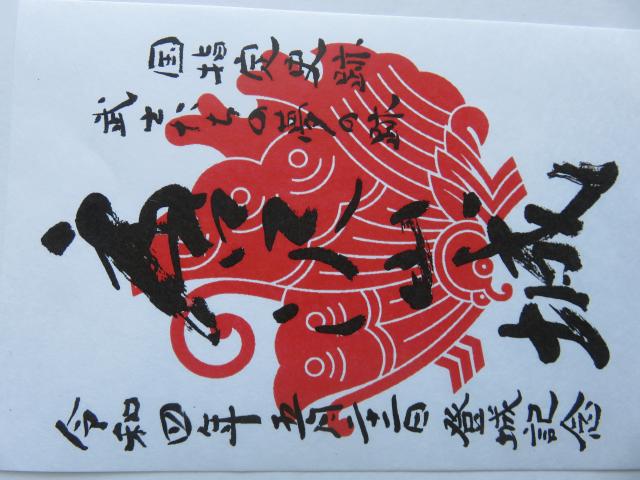 国指定史跡
武士たちの夢の跡
唐沢山城
令和四年五月 日登城記念